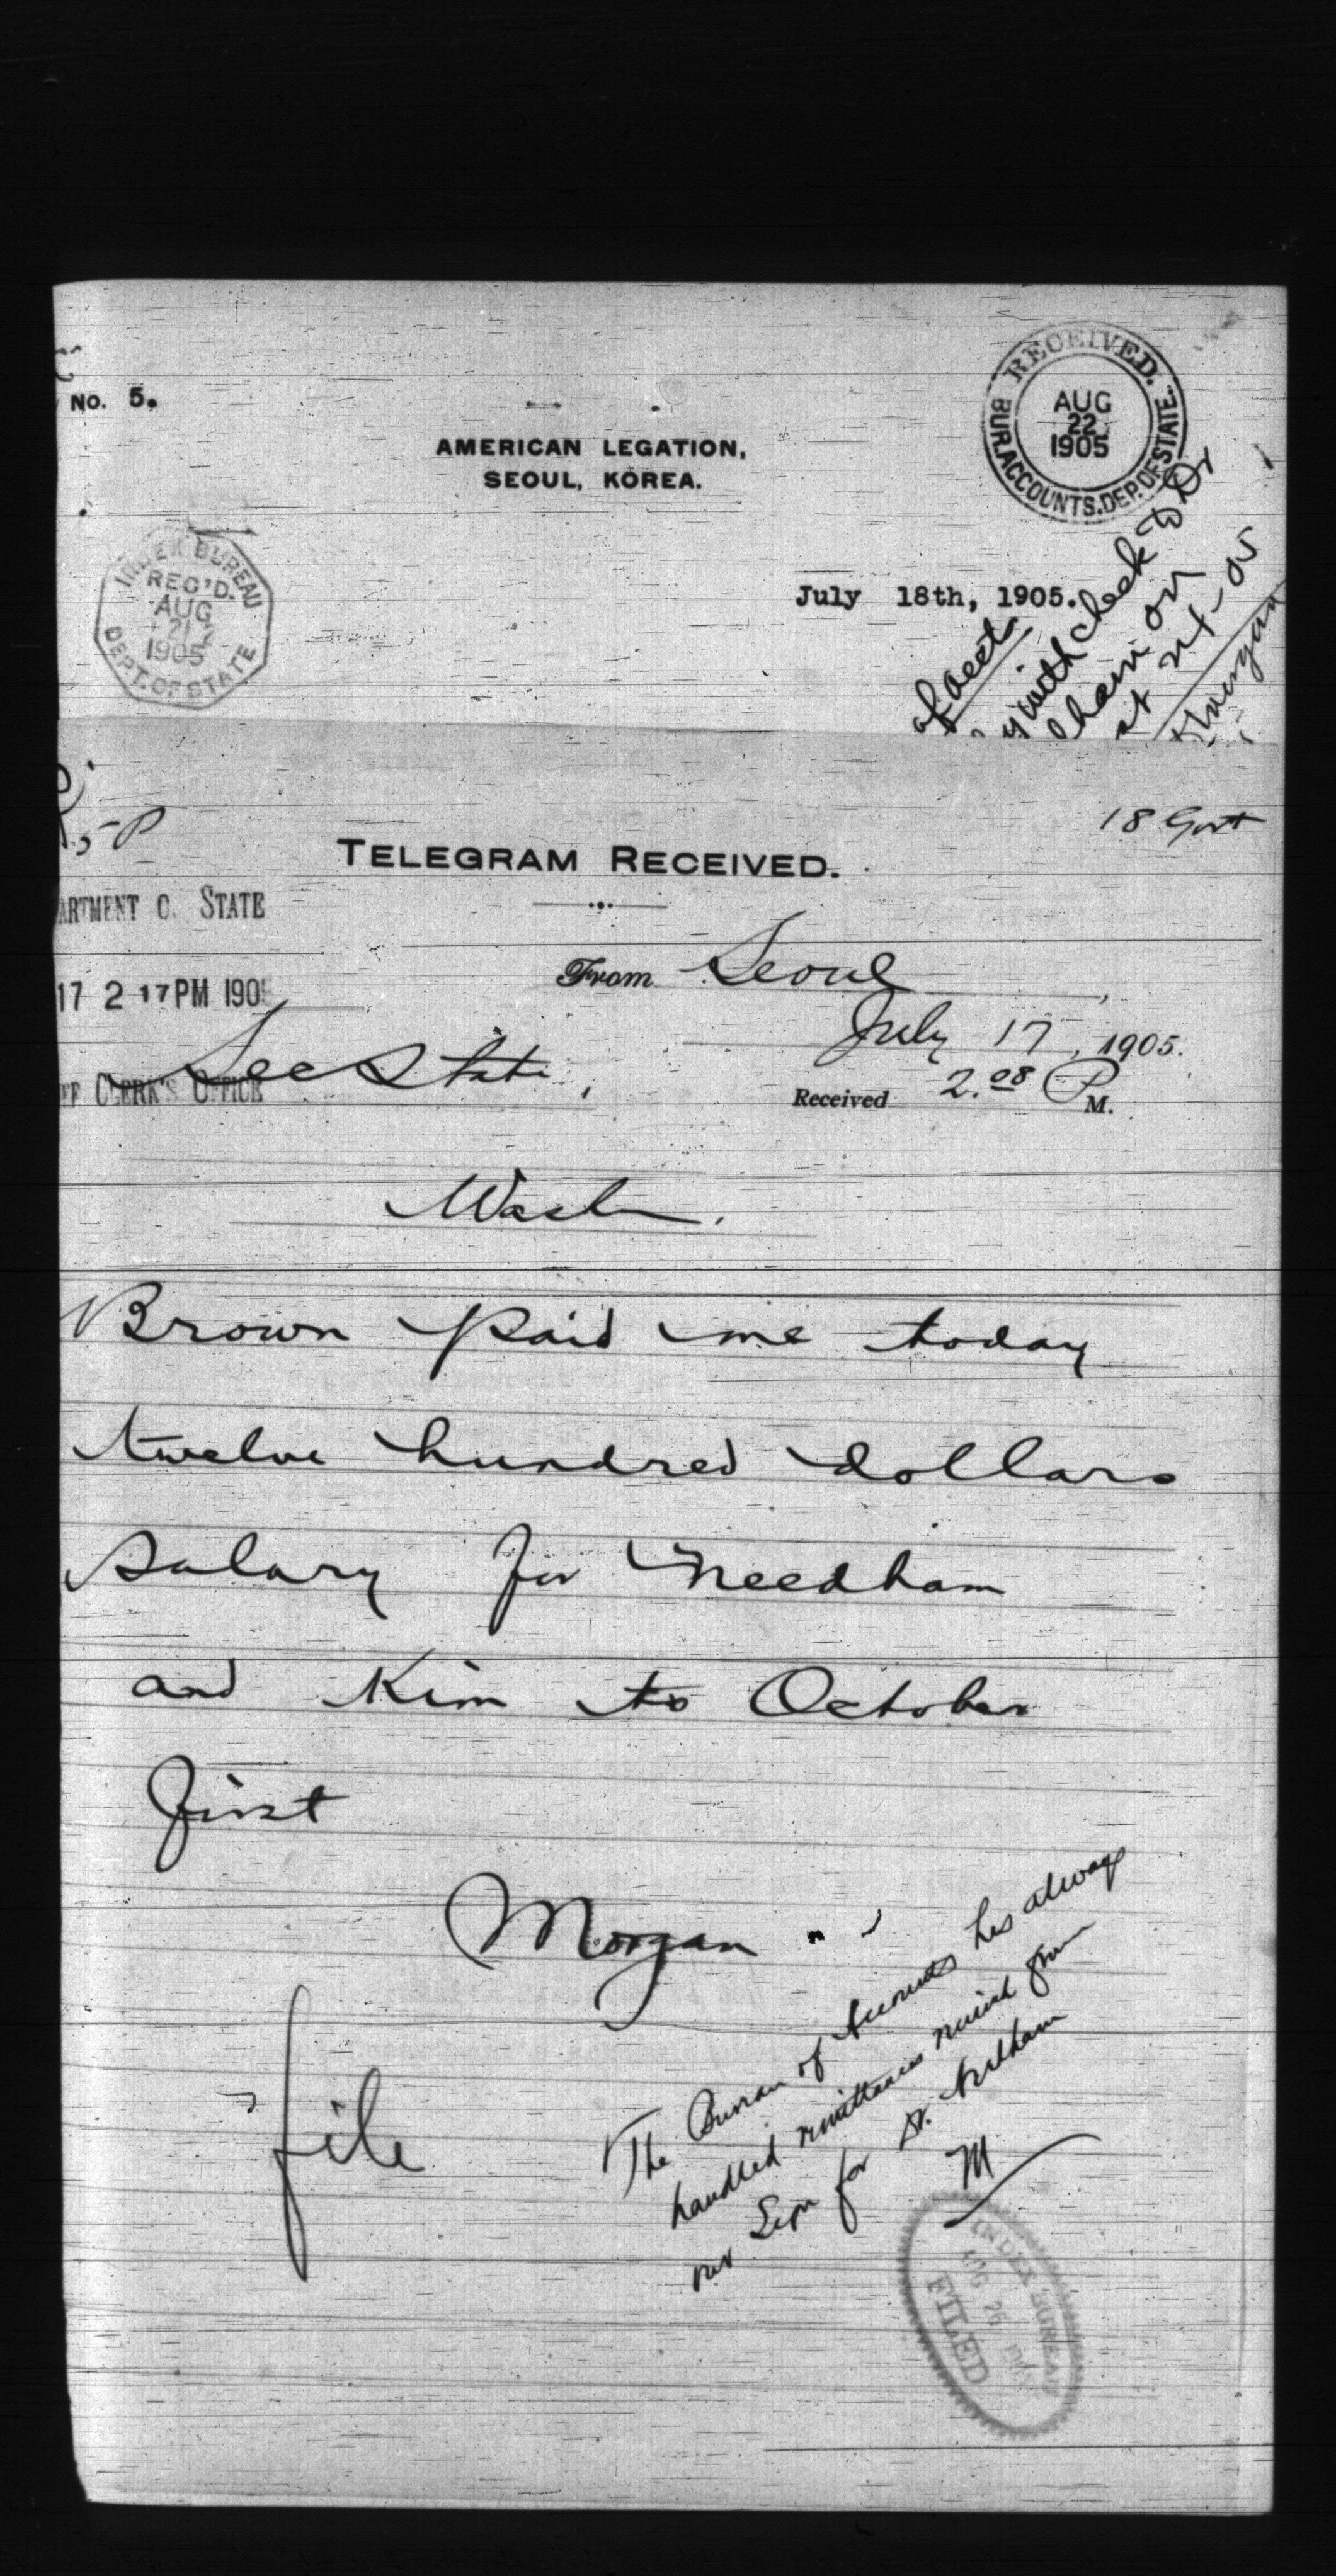 No. 5.
RECEIVED.
AUG
22
1905
BUR. ACCOUNTS. DEP. OF STATE.
AMERICAN LEGATION,
SEOUL, KOREA.
INDEX BUREAU
REC'D.
AUG
21
1905
DEPT. OF STATE
July 18th, 1905.
of acct
with check to Dr
18 Govt
5 P
TELEGRAM RECEIVED.
ARTMENT O. STATE
From Seoul,
17 2 17 PM 190
July 17, 1905.
Sec State,
CLERK'S OFFICE
Received 2.08 P M.
Wash.
Brown paid me today
twelve hundred dollars
salary for Needham
and Kim to October
first
Morgan
file
The Bureau of Accounts has always
handled remittances received from
our Legn for Dr. Needham
M
INDEX BUREAU
AUG 26
FILED